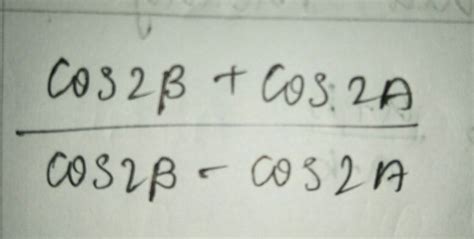 cos2β + cos 2A
cos2β - cos2A